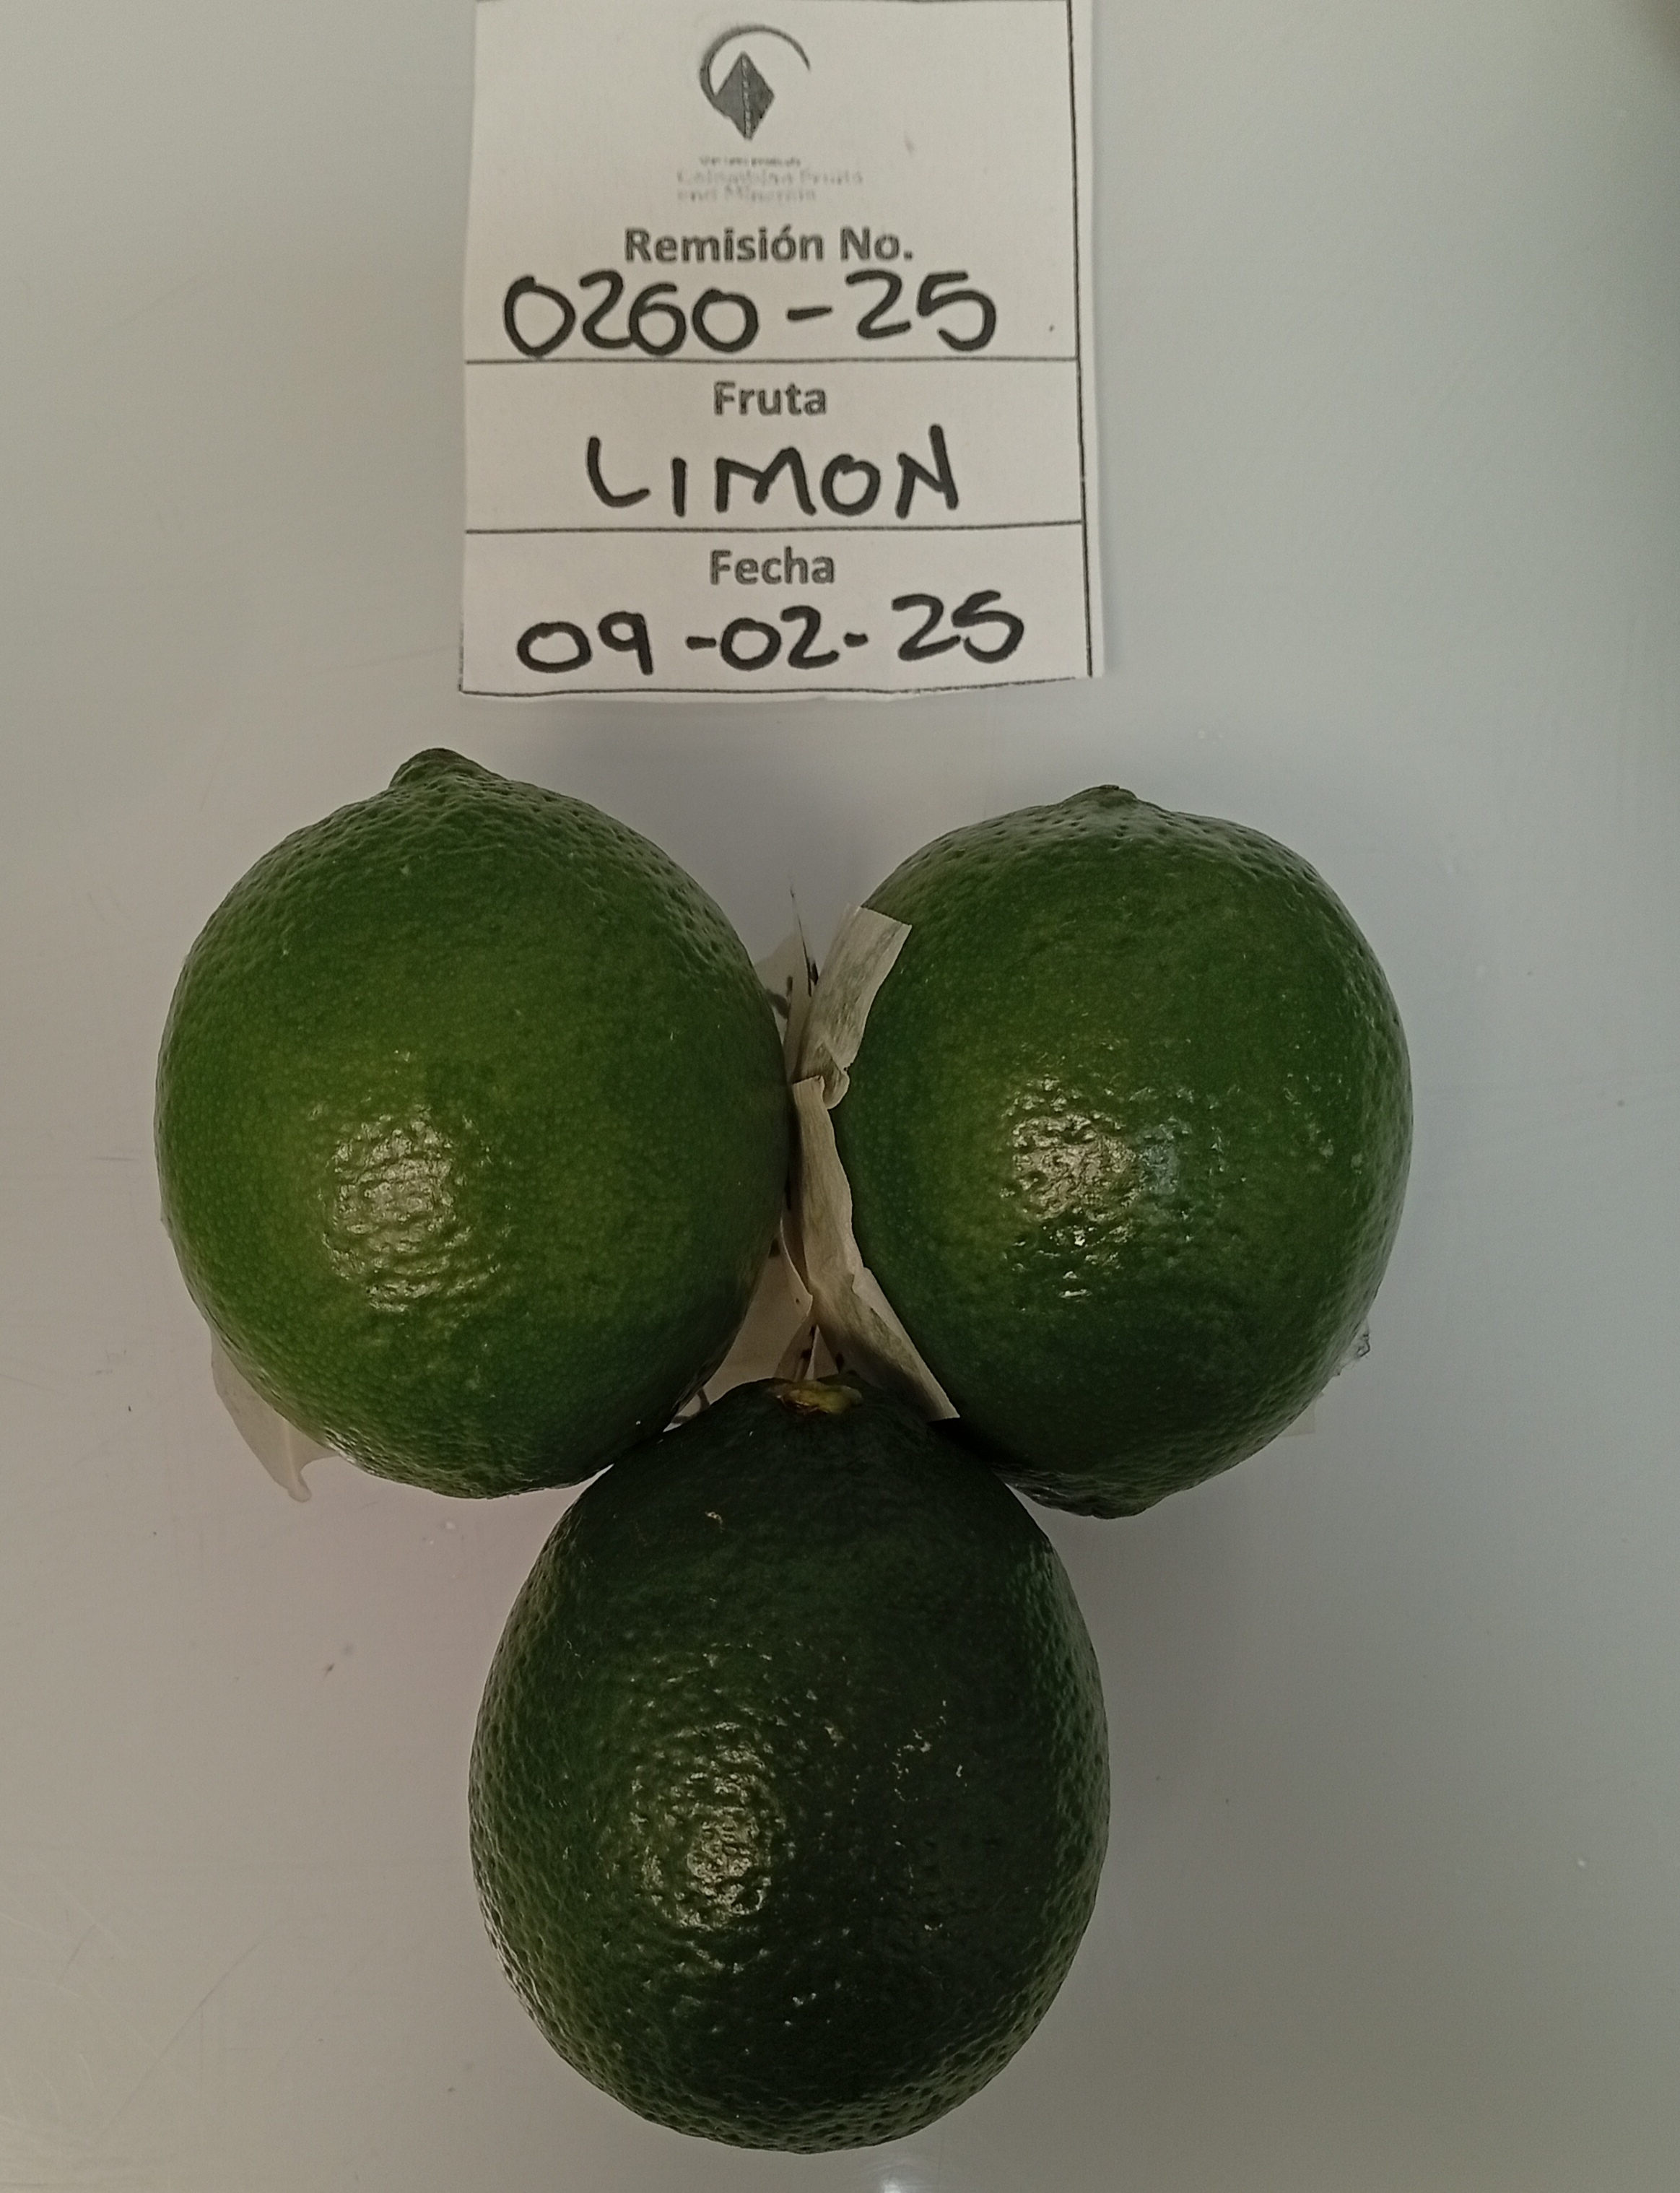 Colombian Fruits
and Minerals
Remisión No.
0260-25
Fruta
LIMON
Fecha
09-02-25